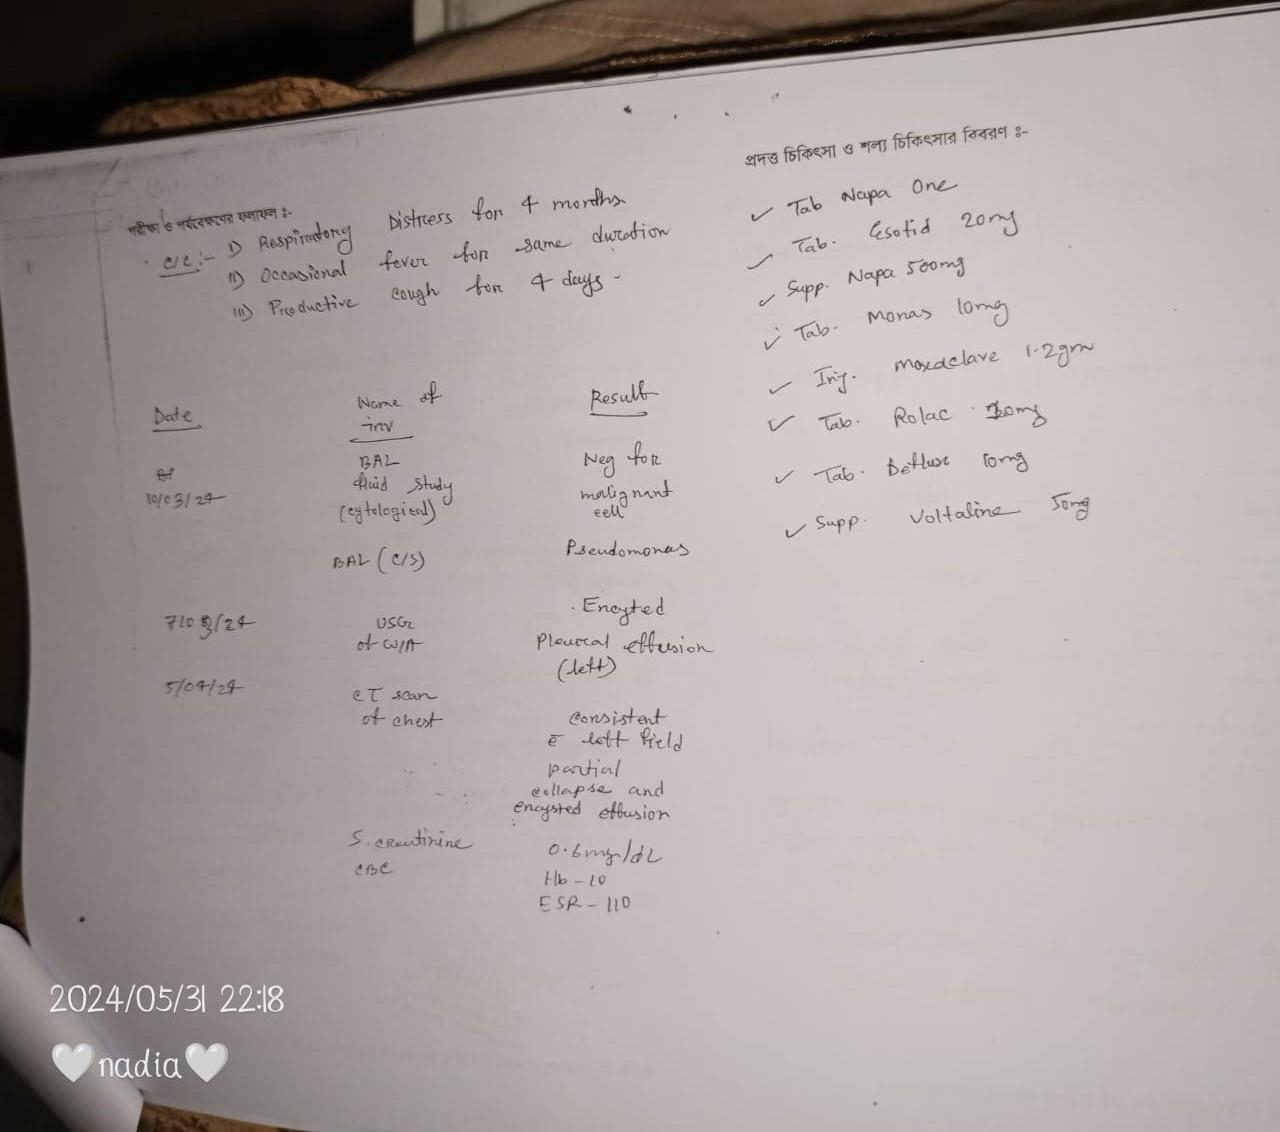 পরীক্ষা ও পর্যবেক্ষণের ফলাফল :-
c/c :- i) Respiratory Distress for 4 months.
ii) Occasional fever for same duration
iii) Productive cough for 4 days -
Date
Name of
inv
Result
10/03/24
BAL
fluid study
(cytological)
Neg for
malignant
cell
BAL (c/s)
Pseudomonas
7/03/24
USG
of W/A
Encyted
Pleural effusion
(left)
5/04/24
CT scan
of chest
consistent
c̄ left field
partial
collapse and
encysted effusion
S. creatinine
0.6mg/dL
CBC
Hb - 10
ESR - 110
প্রদত্ত চিকিৎসা ও শল্য চিকিৎসার বিবরণ :-
✓ Tab Napa One
✓ Tab. Esotid 20mg
✓ Supp. Napa 500mg
✓ Tab. Monas 10mg
✓ Inj. moxaclave 1.2gm
✓ Tab. Rolac 10mg
✓ Tab. Deflux 10mg
✓ Supp. Voltaline 50mg
2024/05/31 22:18
🤍nadia🤍